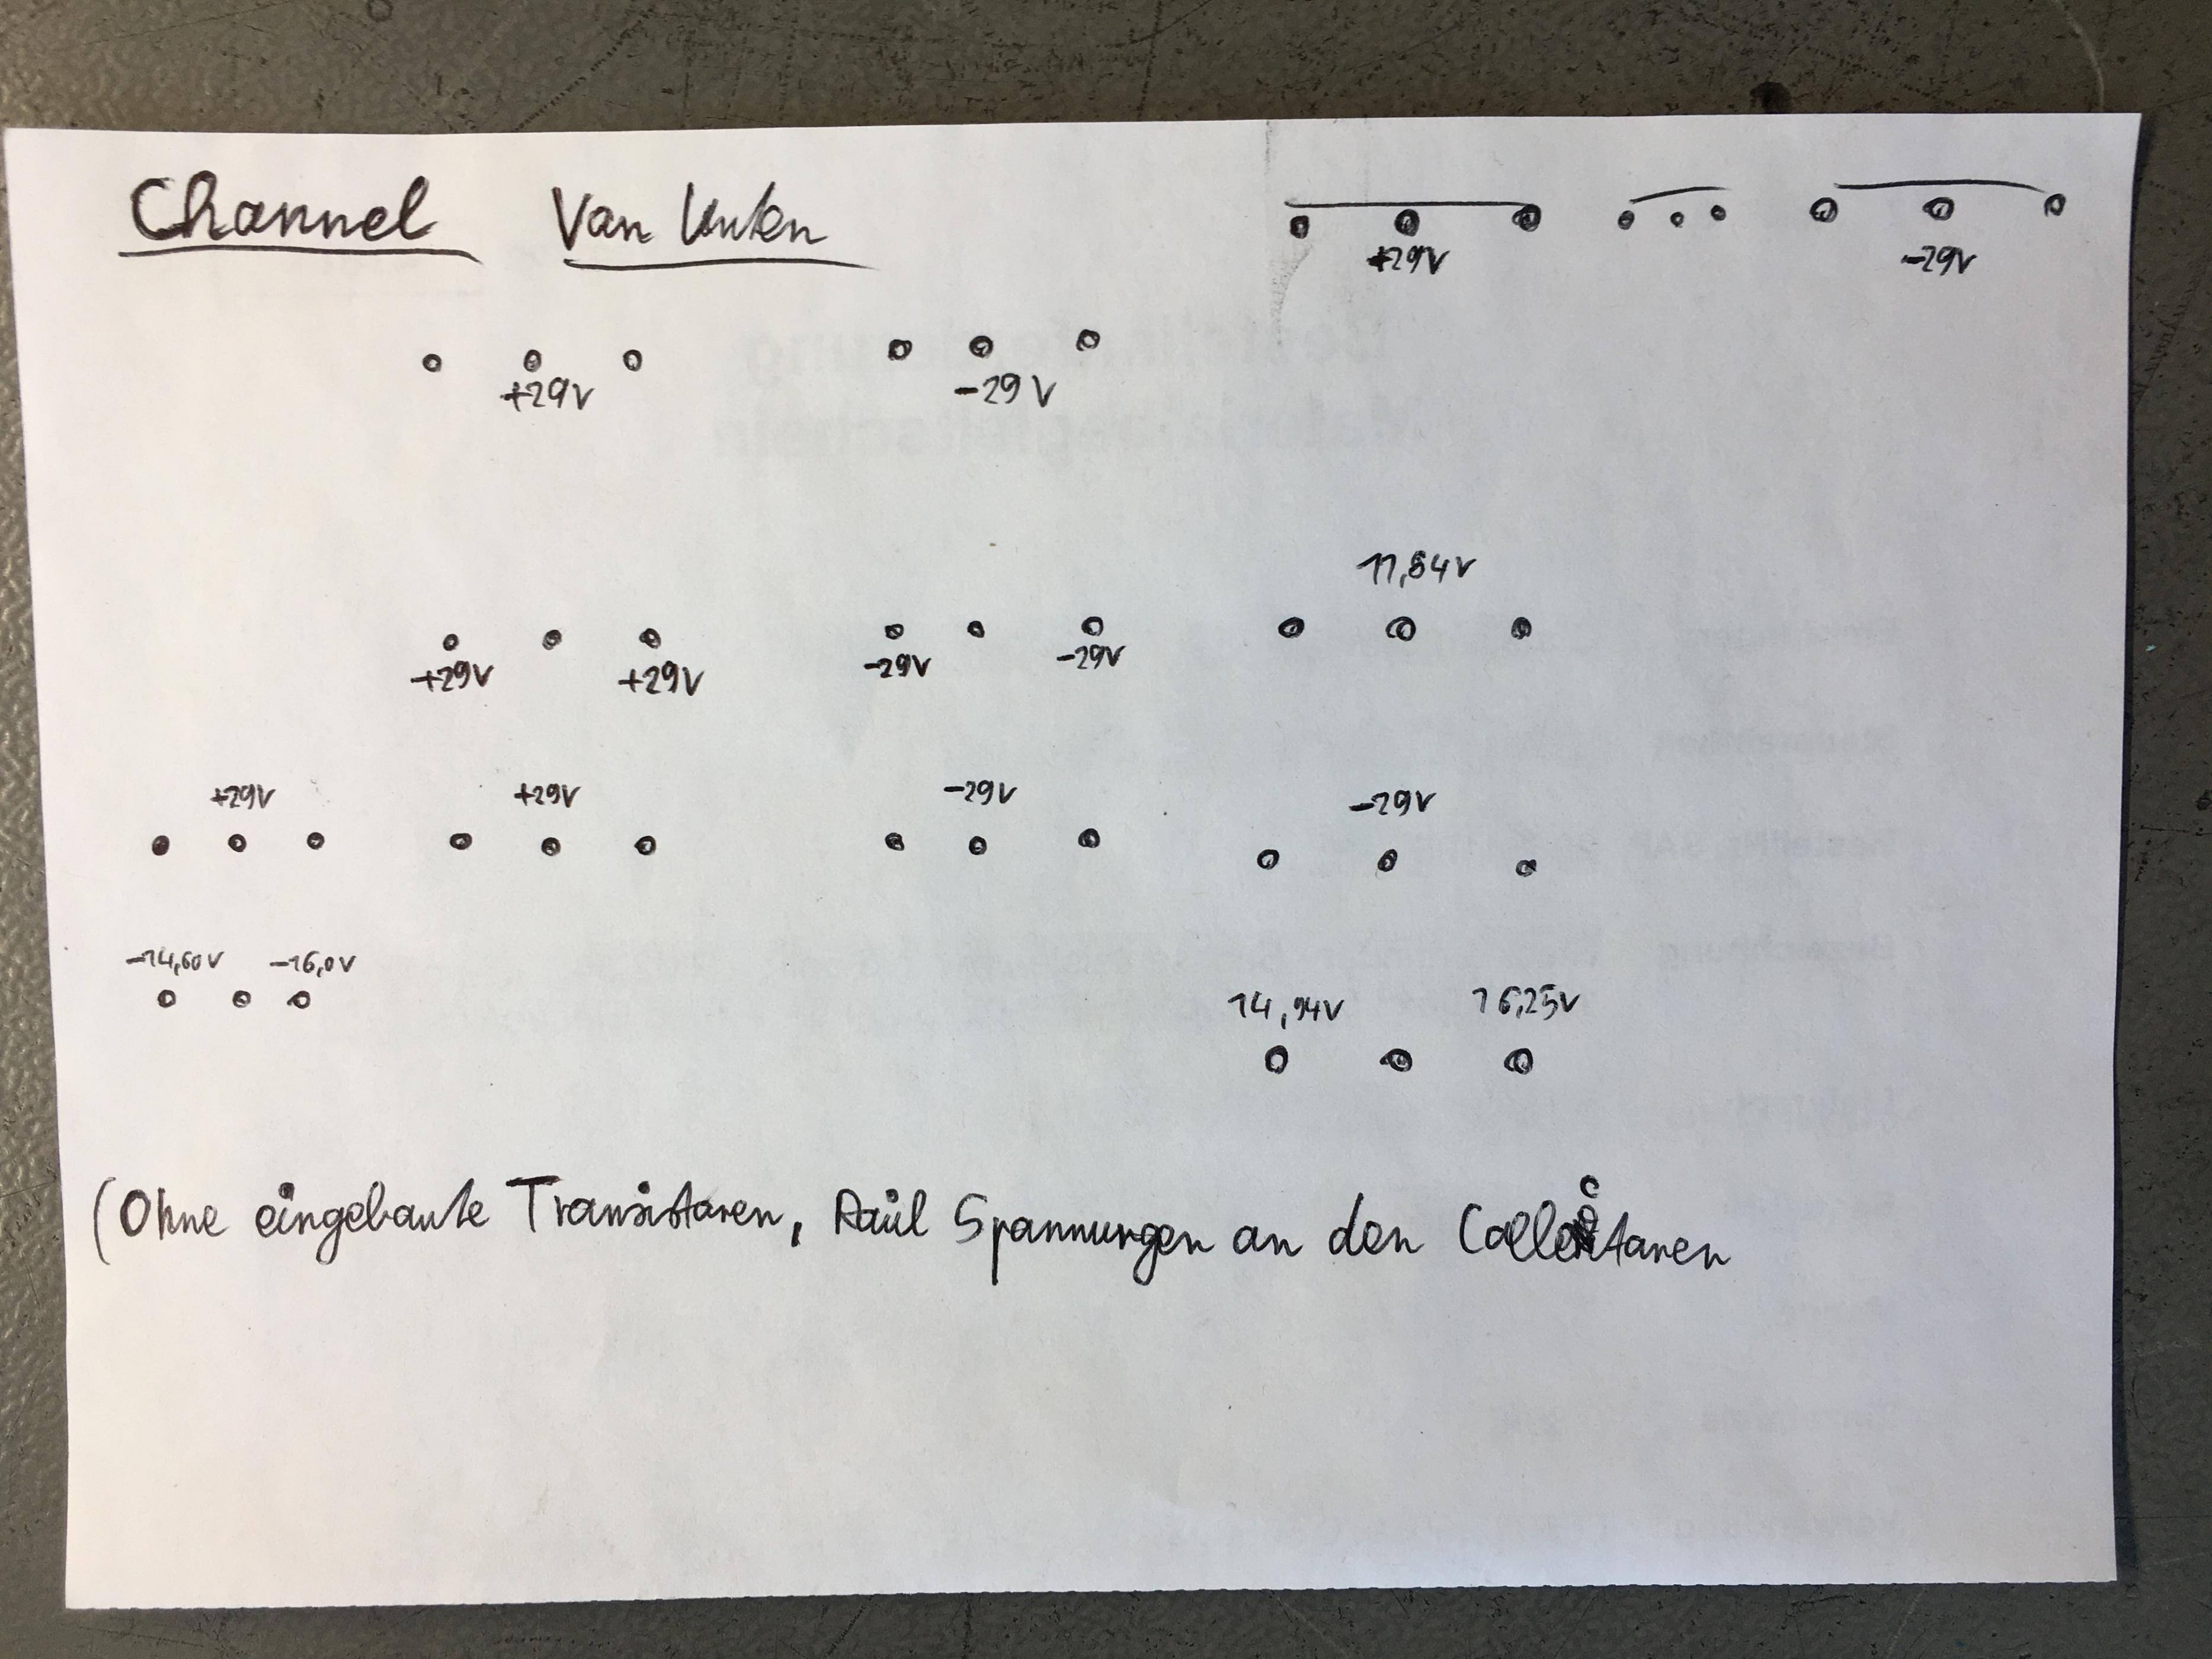 Channel Von Unten
+29V -29V
+29V -29V
11,84V
+29V +29V -29V -29V
+29V +29V -29V -29V
-14,60V -16,0V
14,94V 16,25V
(Ohne eingebaute Transistoren, Spannungen an den Collectoren